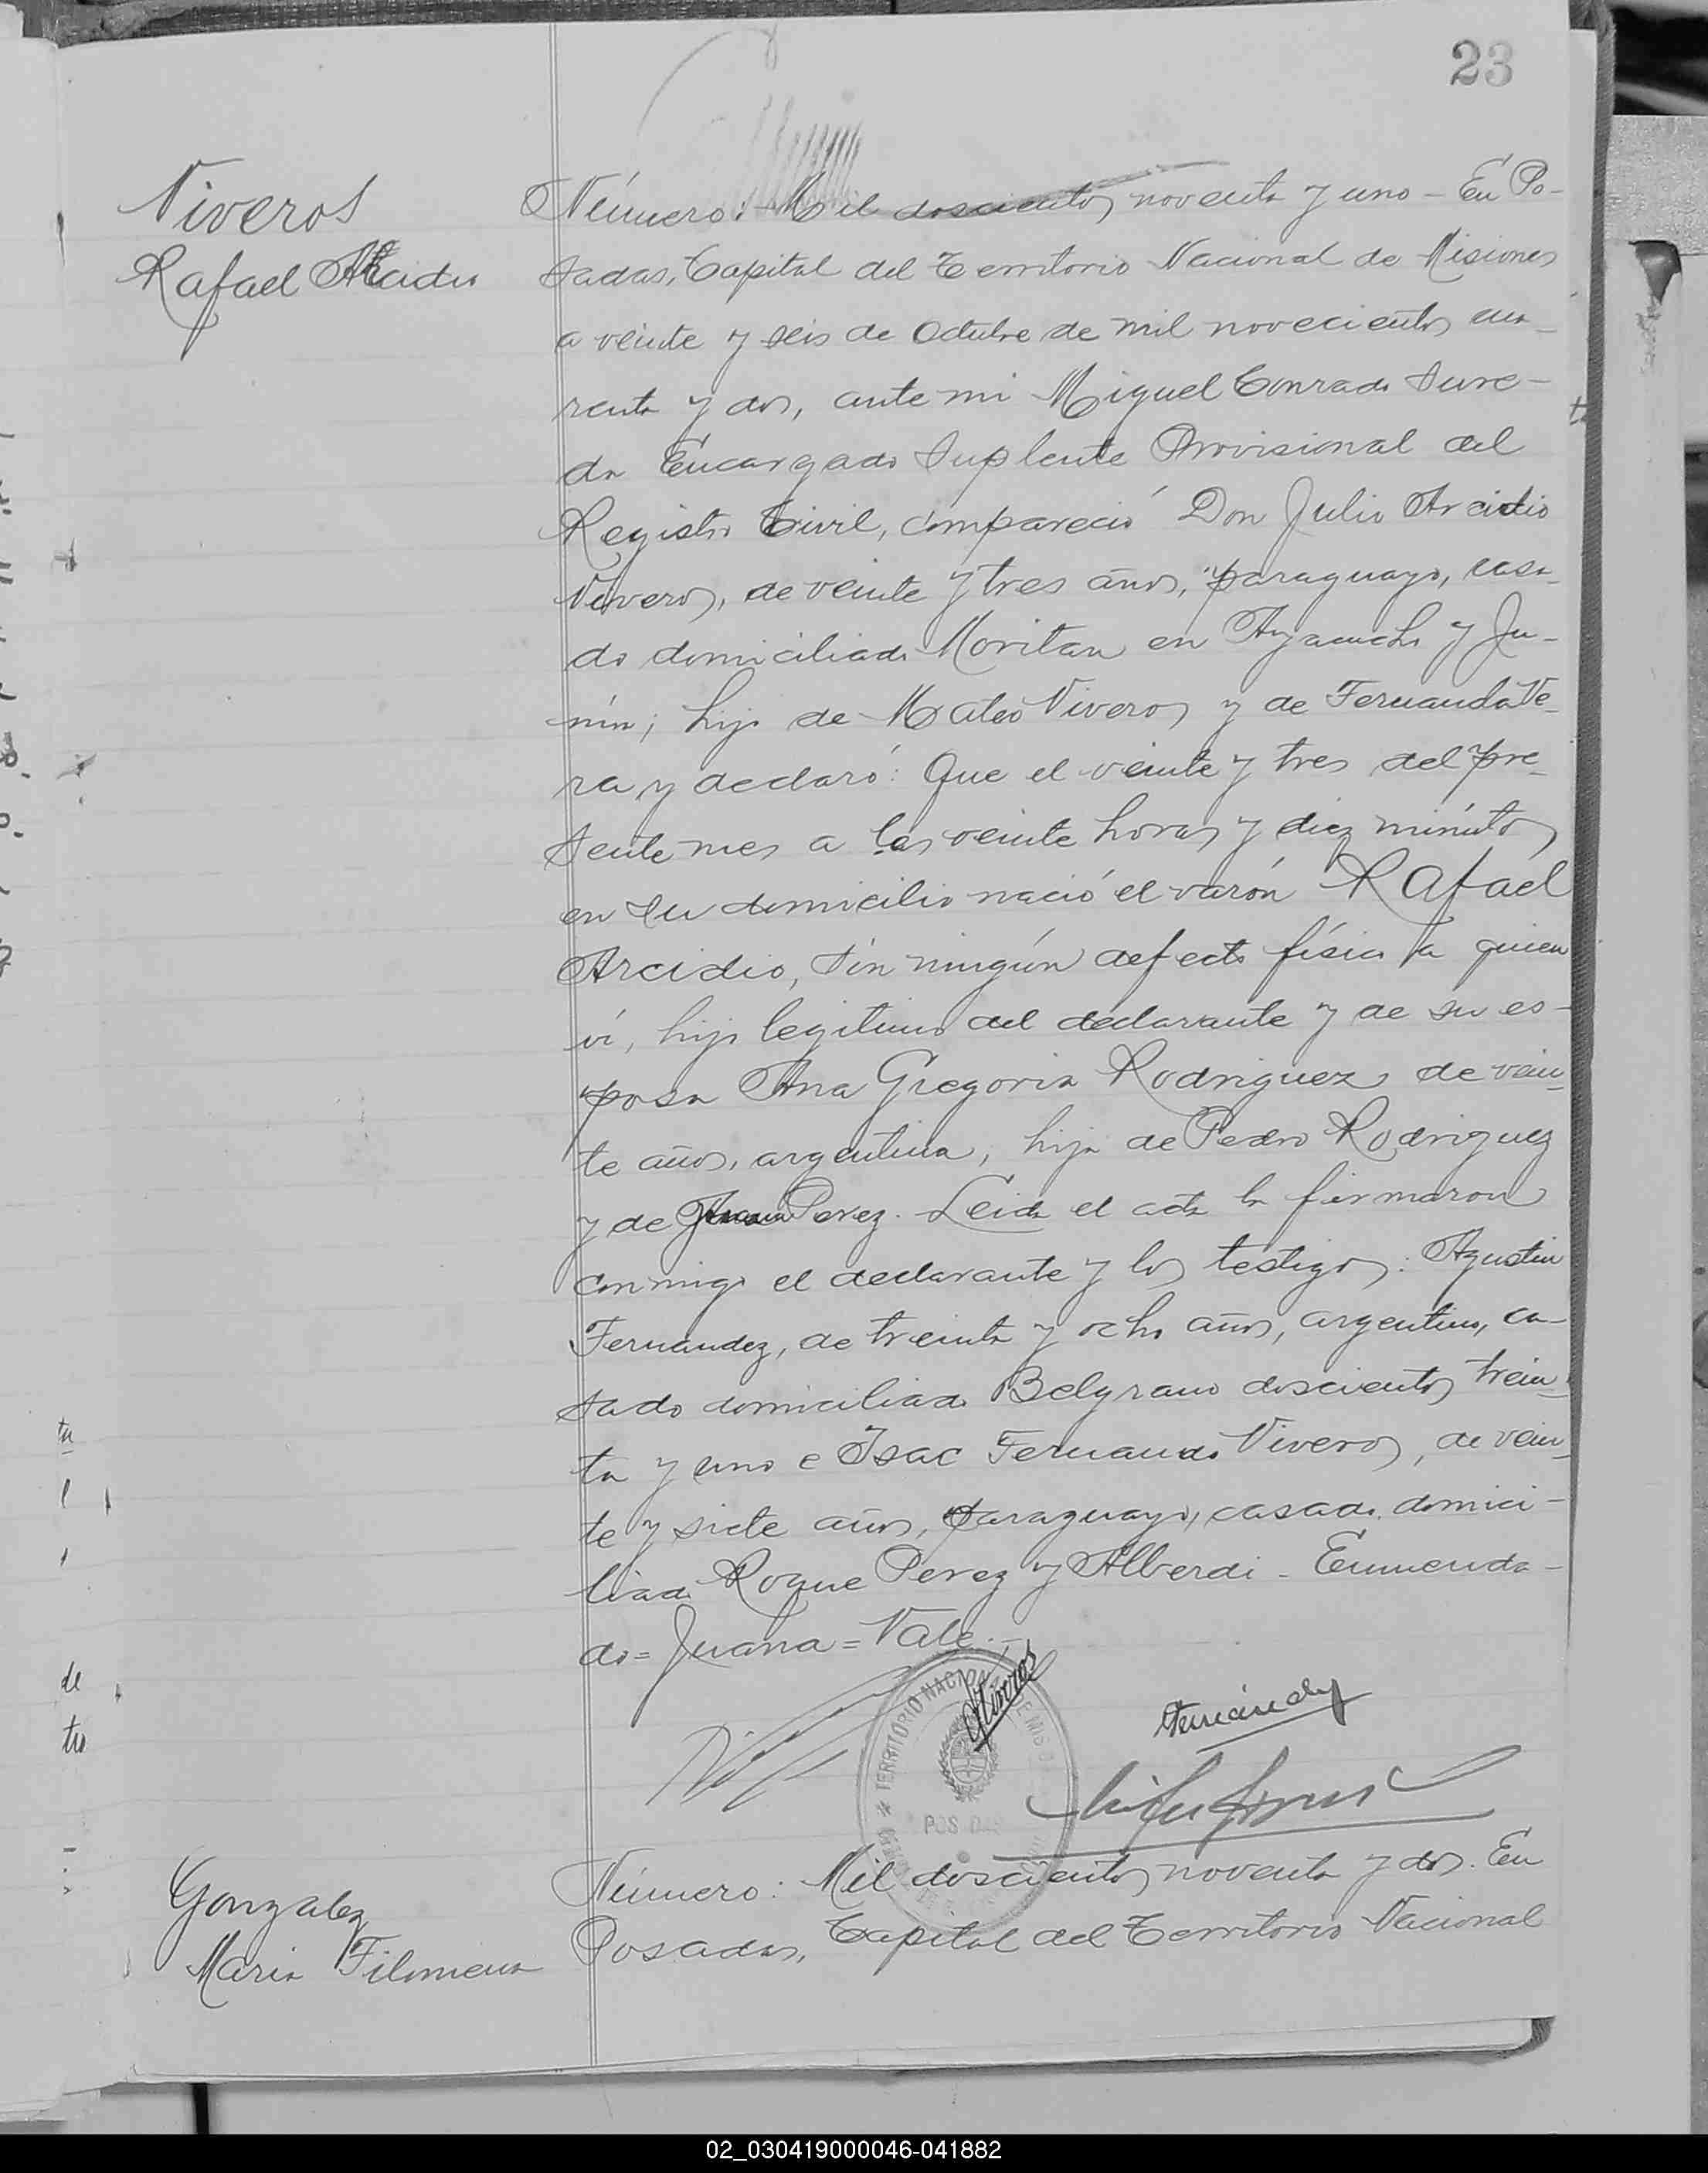 23
Viveros
Rafael Arcidio
Número: Mil doscientos noventa y uno - En Po-
sadas, Capital del Territorio Nacional de Misiones
a veinte y seis de Octubre de mil novecientos cua-
renta y dos, ante mi Miguel Conrado Sure-
da Encargado Suplente Provisional del
Registro Civil, compareció Don Julio Arcidio
Viveros, de veinte y tres años, paraguayo, casa-
do domiciliado en Ayacucho y Ju-
nin; hijo de Mateo Viveros y de Fernanda Ve-
ra y declaró: Que el veinte y tres del pre-
sente mes a las veinte horas y diez minutos
en su domicilio nació el varón Rafael
Arcidio, sin ningún defecto físico a quien
vi, hijo legitimo del declarante y de su es-
posa Ana Gregoria Rodriguez de vein-
te años, argentina, hija de Pedro Rodriguez
y de Juana Perez. Leida el acta la firmaron
conmigo el declarante y los testigos: Agustin
Fernandez, de treinta y ocho años, argentino, ca-
sado domiciliado Belgrano doscientos trein-
ta y uno e Isac Fernando Viveros, de vein-
te y siete años, paraguayo, casado, domici-
liado Roque Perez y Alberdi - Enmenda-
do = Juana = Vale.-
Viveros
Fernández
TERRITORIO NACIONAL DE MISIONES
POSADAS
Gonzalez
Maria Filomena
Número: Mil doscientos noventa y dos. En
Posadas, Capital del Territorio Nacional
ta
l
de
tro
02_030419000046-041882